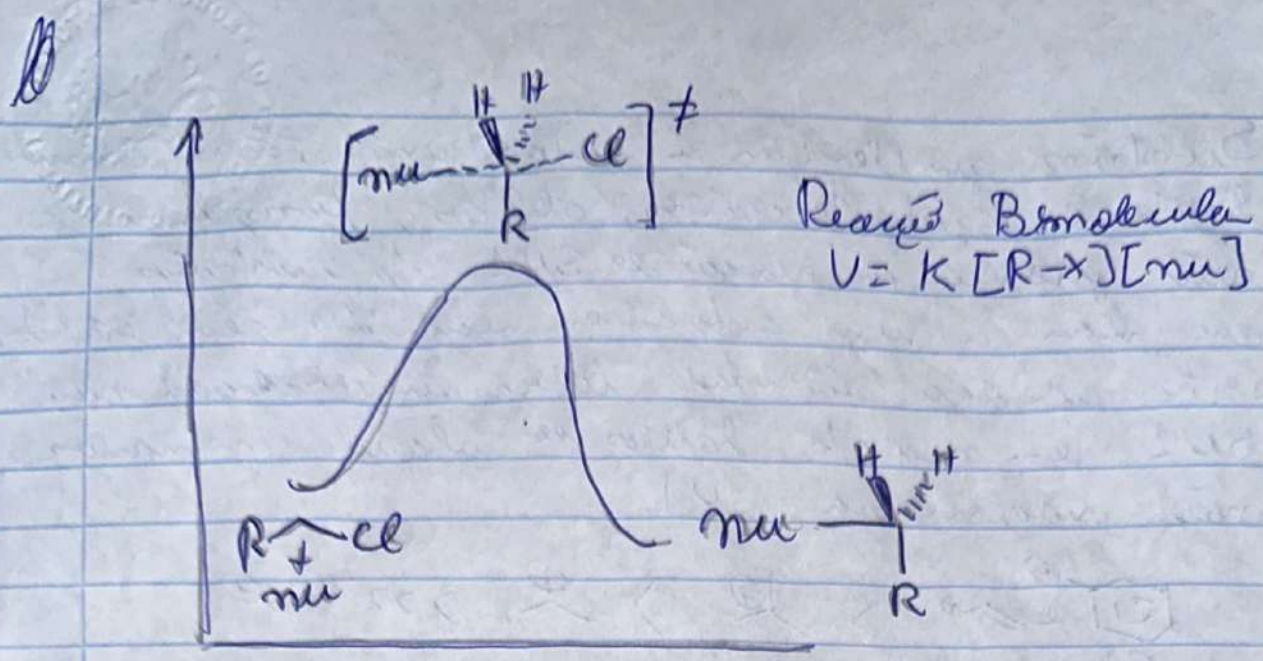 H H
[nu Cl]≠
R
Reação Bimolecular
V = K [R-X][nu]
R Cl
+
nu
H H
nu
R